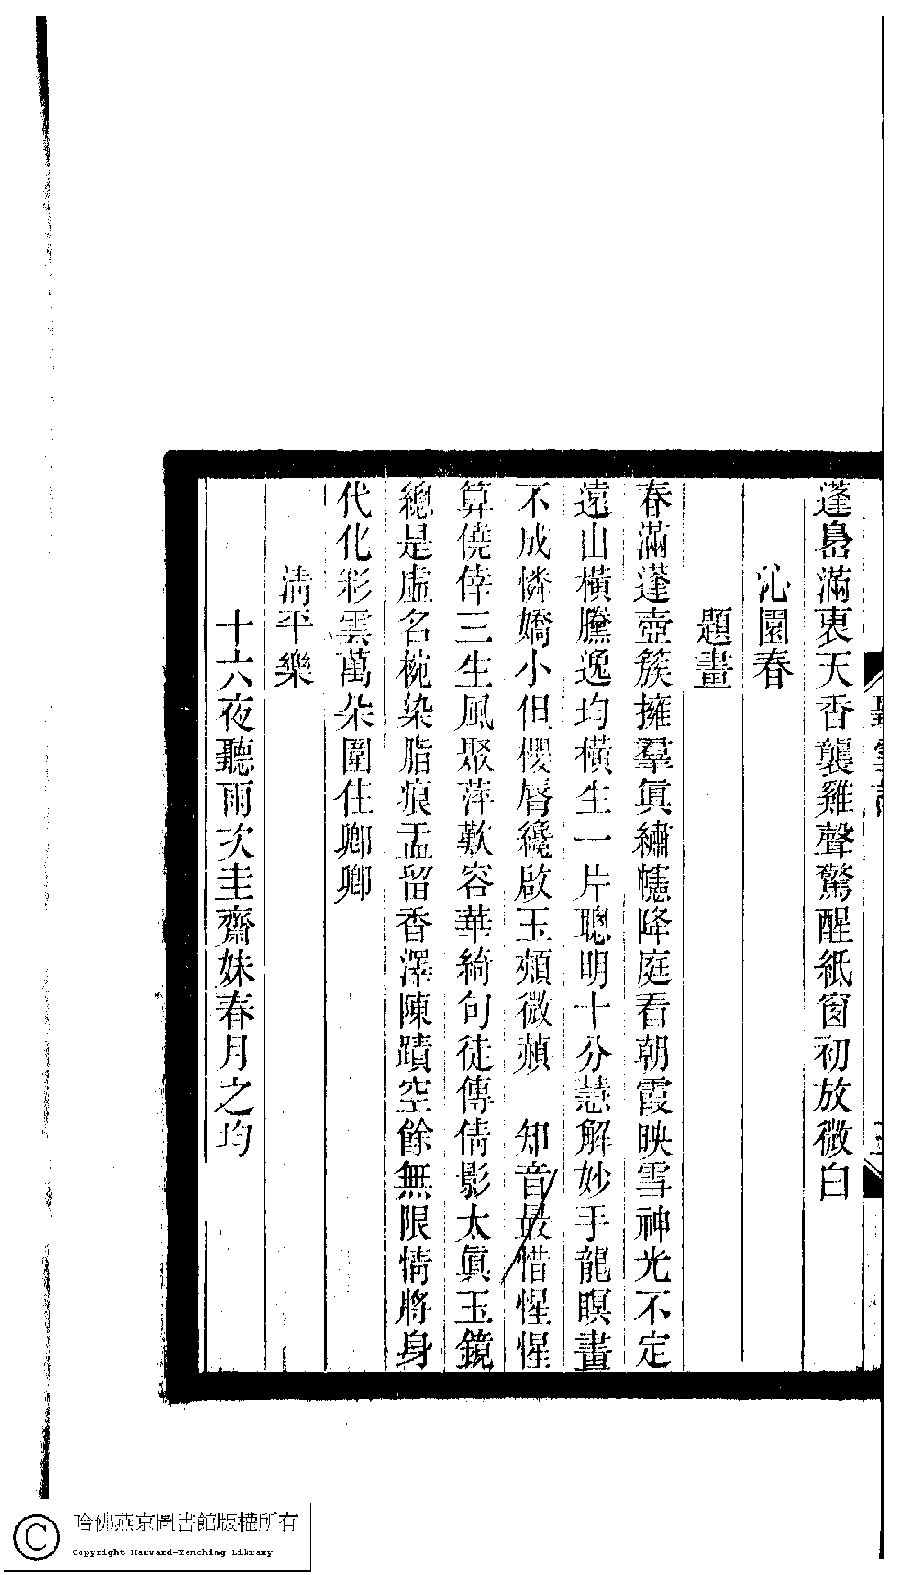 蓬島滿衷天香襲雞聲驚醒紙窗初放微白
沁園春
題畫
春滿蓬壺簇擁羣眞繡幰降庭看朝霞映雪神光不定
遠山橫騰逸均橫生一片聰明十分慧解妙手龍瞑畫
不成憐嬌小但櫻脣纔啟玉頰微頳　知音最惜惺惺
算僥倖三生風聚萍歎容華綺句徒傳倩影太眞玉鏡
總是虛名椀染脂痕盂留香澤陳蹟空餘無限情將身
代化彩雲萬朵圍住卿卿
清平樂
十六夜聽雨次圭齋妹春月之均
哈佛燕京圖書館版權所有
Copyright Harvard-Yenching Library